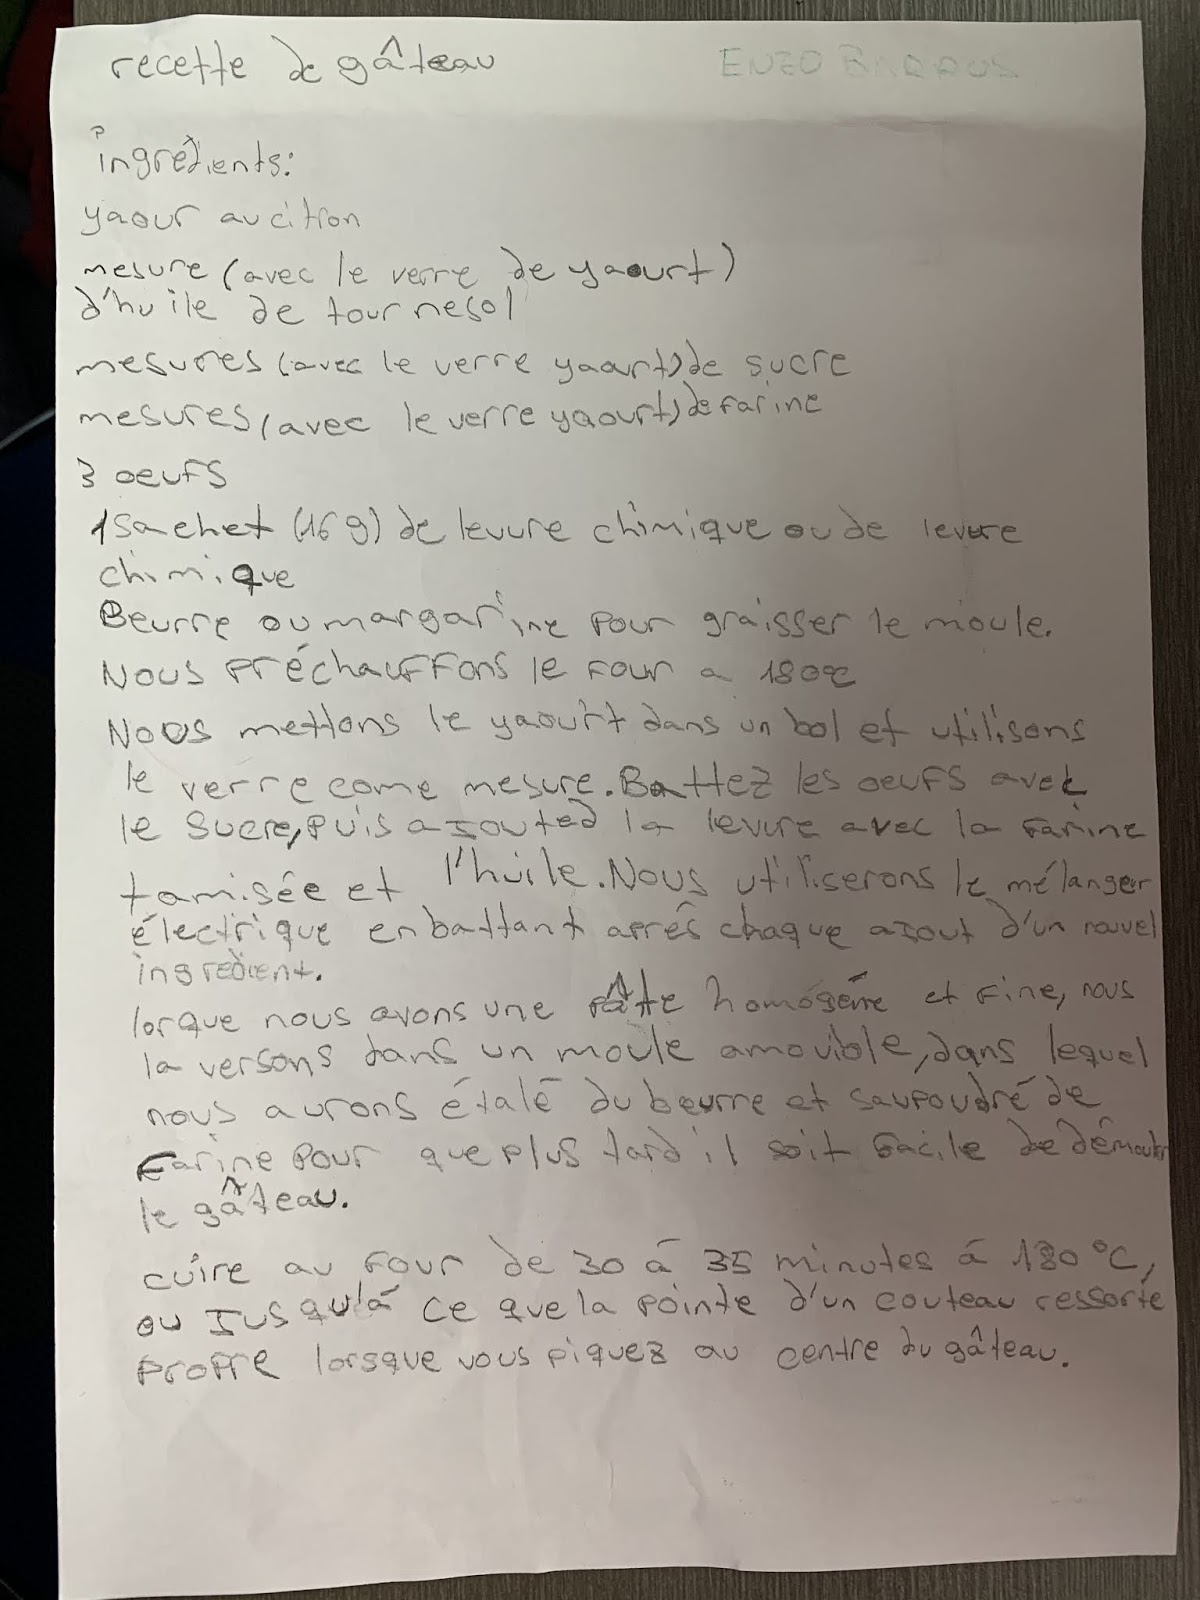 recette de gâteau ENZO BARROS
ingrédients:
yaour au citron
mesure (avec le verre de yaourt)
d'huile de tournesol
mesures (avec le verre yaourt) de sucre
mesures (avec le verre yaourt) de farine
3 oeufs
1 sachet (16 g) de levure chimique ou de levure
chimique
Beurre ou margarine pour graisser le moule.
Nous préchauffons le four a 180°c
Nous mettons le yaourt dans un bol et utilisons
le verre come mesure. Battez les oeufs avec
le sucre, puis ajouted la levure avec la farine
tamisée et l'huile. Nous utiliserons le mélanger
électrique en battant après chaque ajout d'un nouvel
ingredient.
lorque nous avons une pâtte homogéne et fine, nous
la versons dans un moule amovible, dans lequel
nous aurons étalé du beurre et saupoudré de
farine pour que plus tard il soit facile de démouler
le gâteau.
cuire au four de 30 á 35 minutes á 180°C,
ou jusqu'á ce que la pointe d'un couteau ressorte
propre lorsque vous piquez au centre du gâteau.